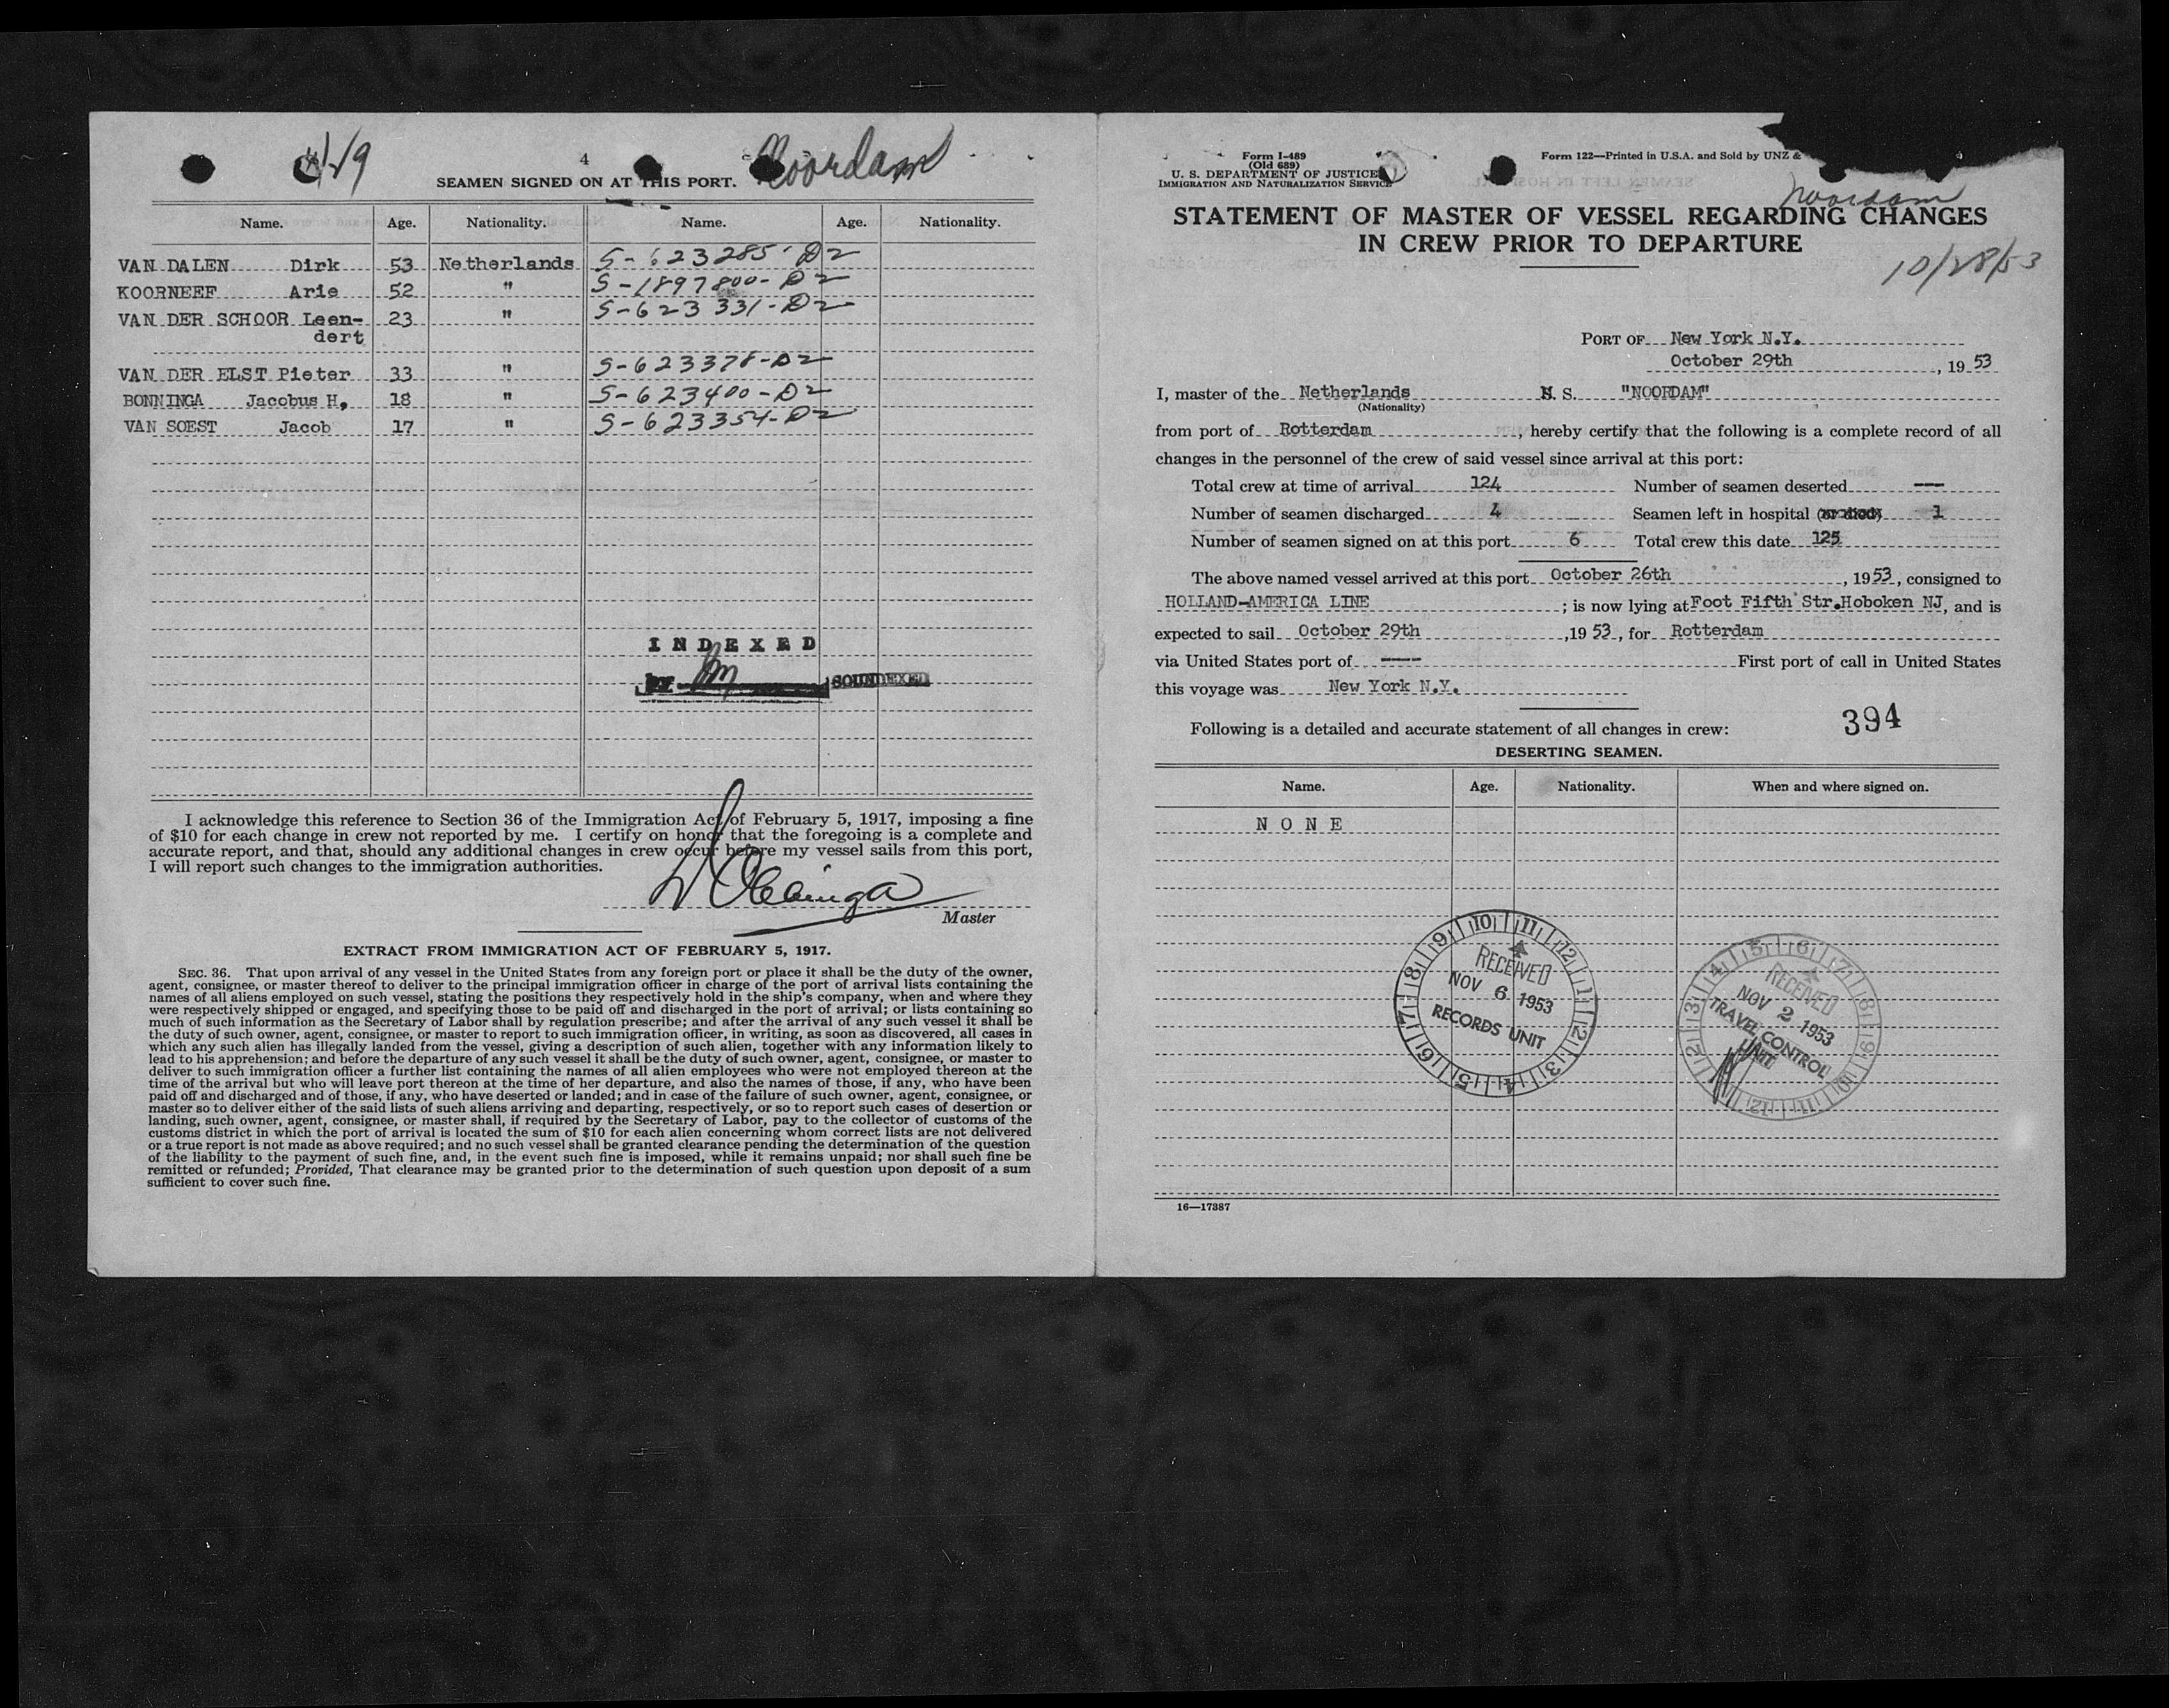 4
Noordam
SEAMEN SIGNED ON AT THIS PORT.
Name. Age. Nationality. Name. Age. Nationality.
VAN DALEN Dirk 53 Netherlands S-623285-D2
KOORNEEF Arie 52 " S-1897800-D2
VAN DER SCHOOR Leen- 23 " S-623331-D2
dert
VAN DER ELST Pieter 33 " S-623378-D2
BONNINGA Jacobus H. 18 " S-623400-D2
VAN SOEST Jacob 17 " S-623354-D2
INDEXED
by
SOUNDEXED
I acknowledge this reference to Section 36 of the Immigration Act of February 5, 1917, imposing a fine
of $10 for each change in crew not reported by me. I certify on honor that the foregoing is a complete and
accurate report, and that, should any additional changes in crew occur before my vessel sails from this port,
I will report such changes to the immigration authorities.
Master
EXTRACT FROM IMMIGRATION ACT OF FEBRUARY 5, 1917.
SEC. 36. That upon arrival of any vessel in the United States from any foreign port or place it shall be the duty of the owner,
agent, consignee, or master thereof to deliver to the principal immigration officer in charge of the port of arrival lists containing the
names of all aliens employed on such vessel, stating the positions they respectively hold in the ship's company, when and where they
were respectively shipped or engaged, and specifying those to be paid off and discharged in the port of arrival; or lists containing so
much of such information as the Secretary of Labor shall by regulation prescribe; and after the arrival of any such vessel it shall be
the duty of such owner, agent, consignee, or master to report to such immigration officer, in writing, as soon as discovered, all cases in
which any such alien has illegally landed from the vessel, giving a description of such alien, together with any information likely to
lead to his apprehension; and before the departure of any such vessel it shall be the duty of such owner, agent, consignee, or master to
deliver to such immigration officer a further list containing the names of all alien employees who were not employed thereon at the
time of the arrival but who will leave port thereon at the time of her departure, and also the names of those, if any, who have been
paid off and discharged and of those, if any, who have deserted or landed; and in case of the failure of such owner, agent, consignee, or
master so to deliver either of the said lists of such aliens arriving and departing, respectively, or so to report such cases of desertion or
landing, such owner, agent, consignee, or master shall, if required by the Secretary of Labor, pay to the collector of customs of the
customs district in which the port of arrival is located the sum of $10 for each alien concerning whom correct lists are not delivered
or a true report is not made as above required; and no such vessel shall be granted clearance pending the determination of the question
of the liability to the payment of such fine, and, in the event such fine is imposed, while it remains unpaid; nor shall such fine be
remitted or refunded; Provided, That clearance may be granted prior to the determination of such question upon deposit of a sum
sufficient to cover such fine.
Form I-489
(Old 689)
U. S. DEPARTMENT OF JUSTICE
IMMIGRATION AND NATURALIZATION SERVICE
Form 122—Printed in U.S.A. and Sold by UNZ &
Noordam
STATEMENT OF MASTER OF VESSEL REGARDING CHANGES
IN CREW PRIOR TO DEPARTURE
10/28/53
PORT OF New York N.Y.
October 29th, 1953
I, master of the Netherlands S. S. "NOORDAM"
(Nationality)
from port of Rotterdam, hereby certify that the following is a complete record of all
changes in the personnel of the crew of said vessel since arrival at this port:
Total crew at time of arrival 124 Number of seamen deserted —
Number of seamen discharged 4 Seamen left in hospital (or died) 1
Number of seamen signed on at this port 6 Total crew this date 125
The above named vessel arrived at this port October 26th, 1953, consigned to
HOLLAND-AMERICA LINE; is now lying at Foot Fifth Str.Hoboken NJ, and is
expected to sail October 29th, 1953, for Rotterdam
via United States port of ---- First port of call in United States
this voyage was New York N.Y.
394
Following is a detailed and accurate statement of all changes in crew:
DESERTING SEAMEN.
Name. Age. Nationality. When and where signed on.
NONE
10 11 12 1 2 3 4 5 6 7 8 9
RECEIVED
NOV 6 1953
RECORDS UNIT
5 6 7 8 9 10 11 12 1 2 3 4
RECEIVED
NOV 2 1953
TRAVEL CONTROL
UNIT
16—17387